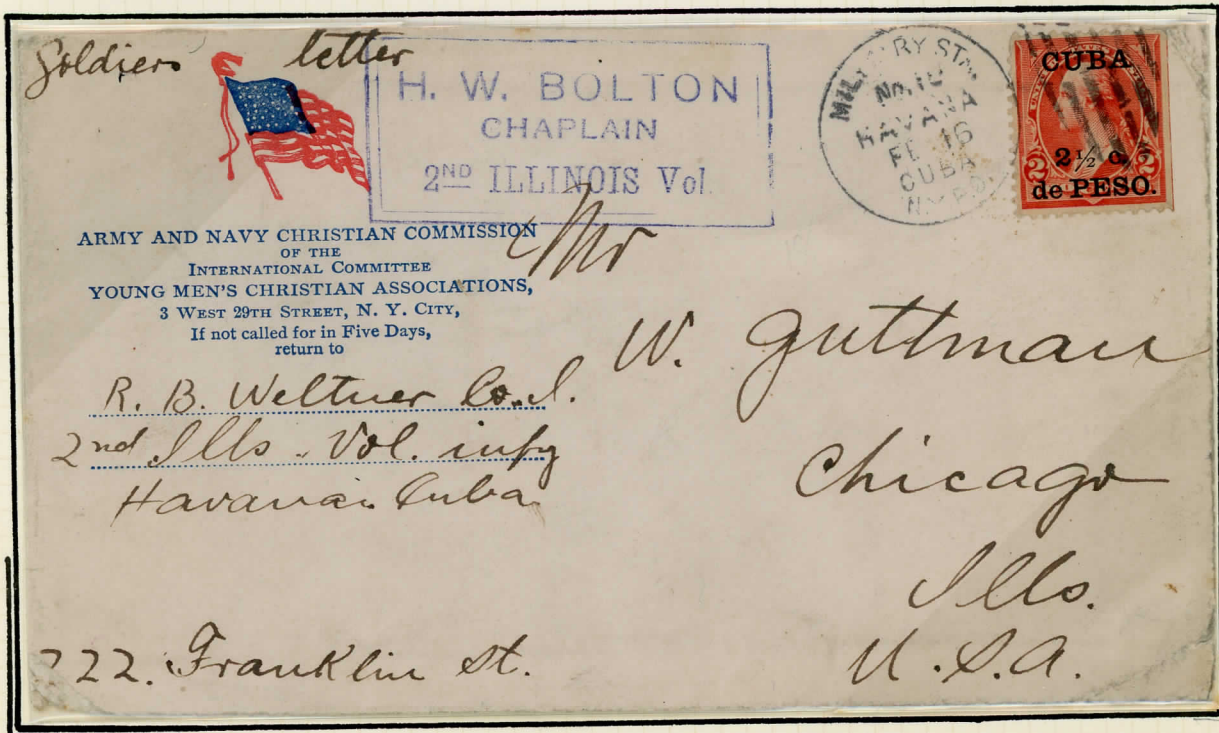 Soldiers letter
H. W. BOLTON
CHAPLAIN
2ND ILLINOIS Vol.
MILITARY STA.
No. 10
HAVANA
FE 16
CUBA
N.Y. P.O.
CUBA.
2 2½ c. 2
de PESO.
ARMY AND NAVY CHRISTIAN COMMISSION
OF THE
INTERNATIONAL COMMITTEE
YOUNG MEN'S CHRISTIAN ASSOCIATIONS,
3 WEST 29TH STREET, N. Y. CITY,
If not called for in Five Days,
return to
R. B. Weltner Co. I.
2nd Ills. Vol. infy
Havana. Cuba
Mr
W. Guttman
Chicago
Ills.
U.S.A.
222. Franklin St.